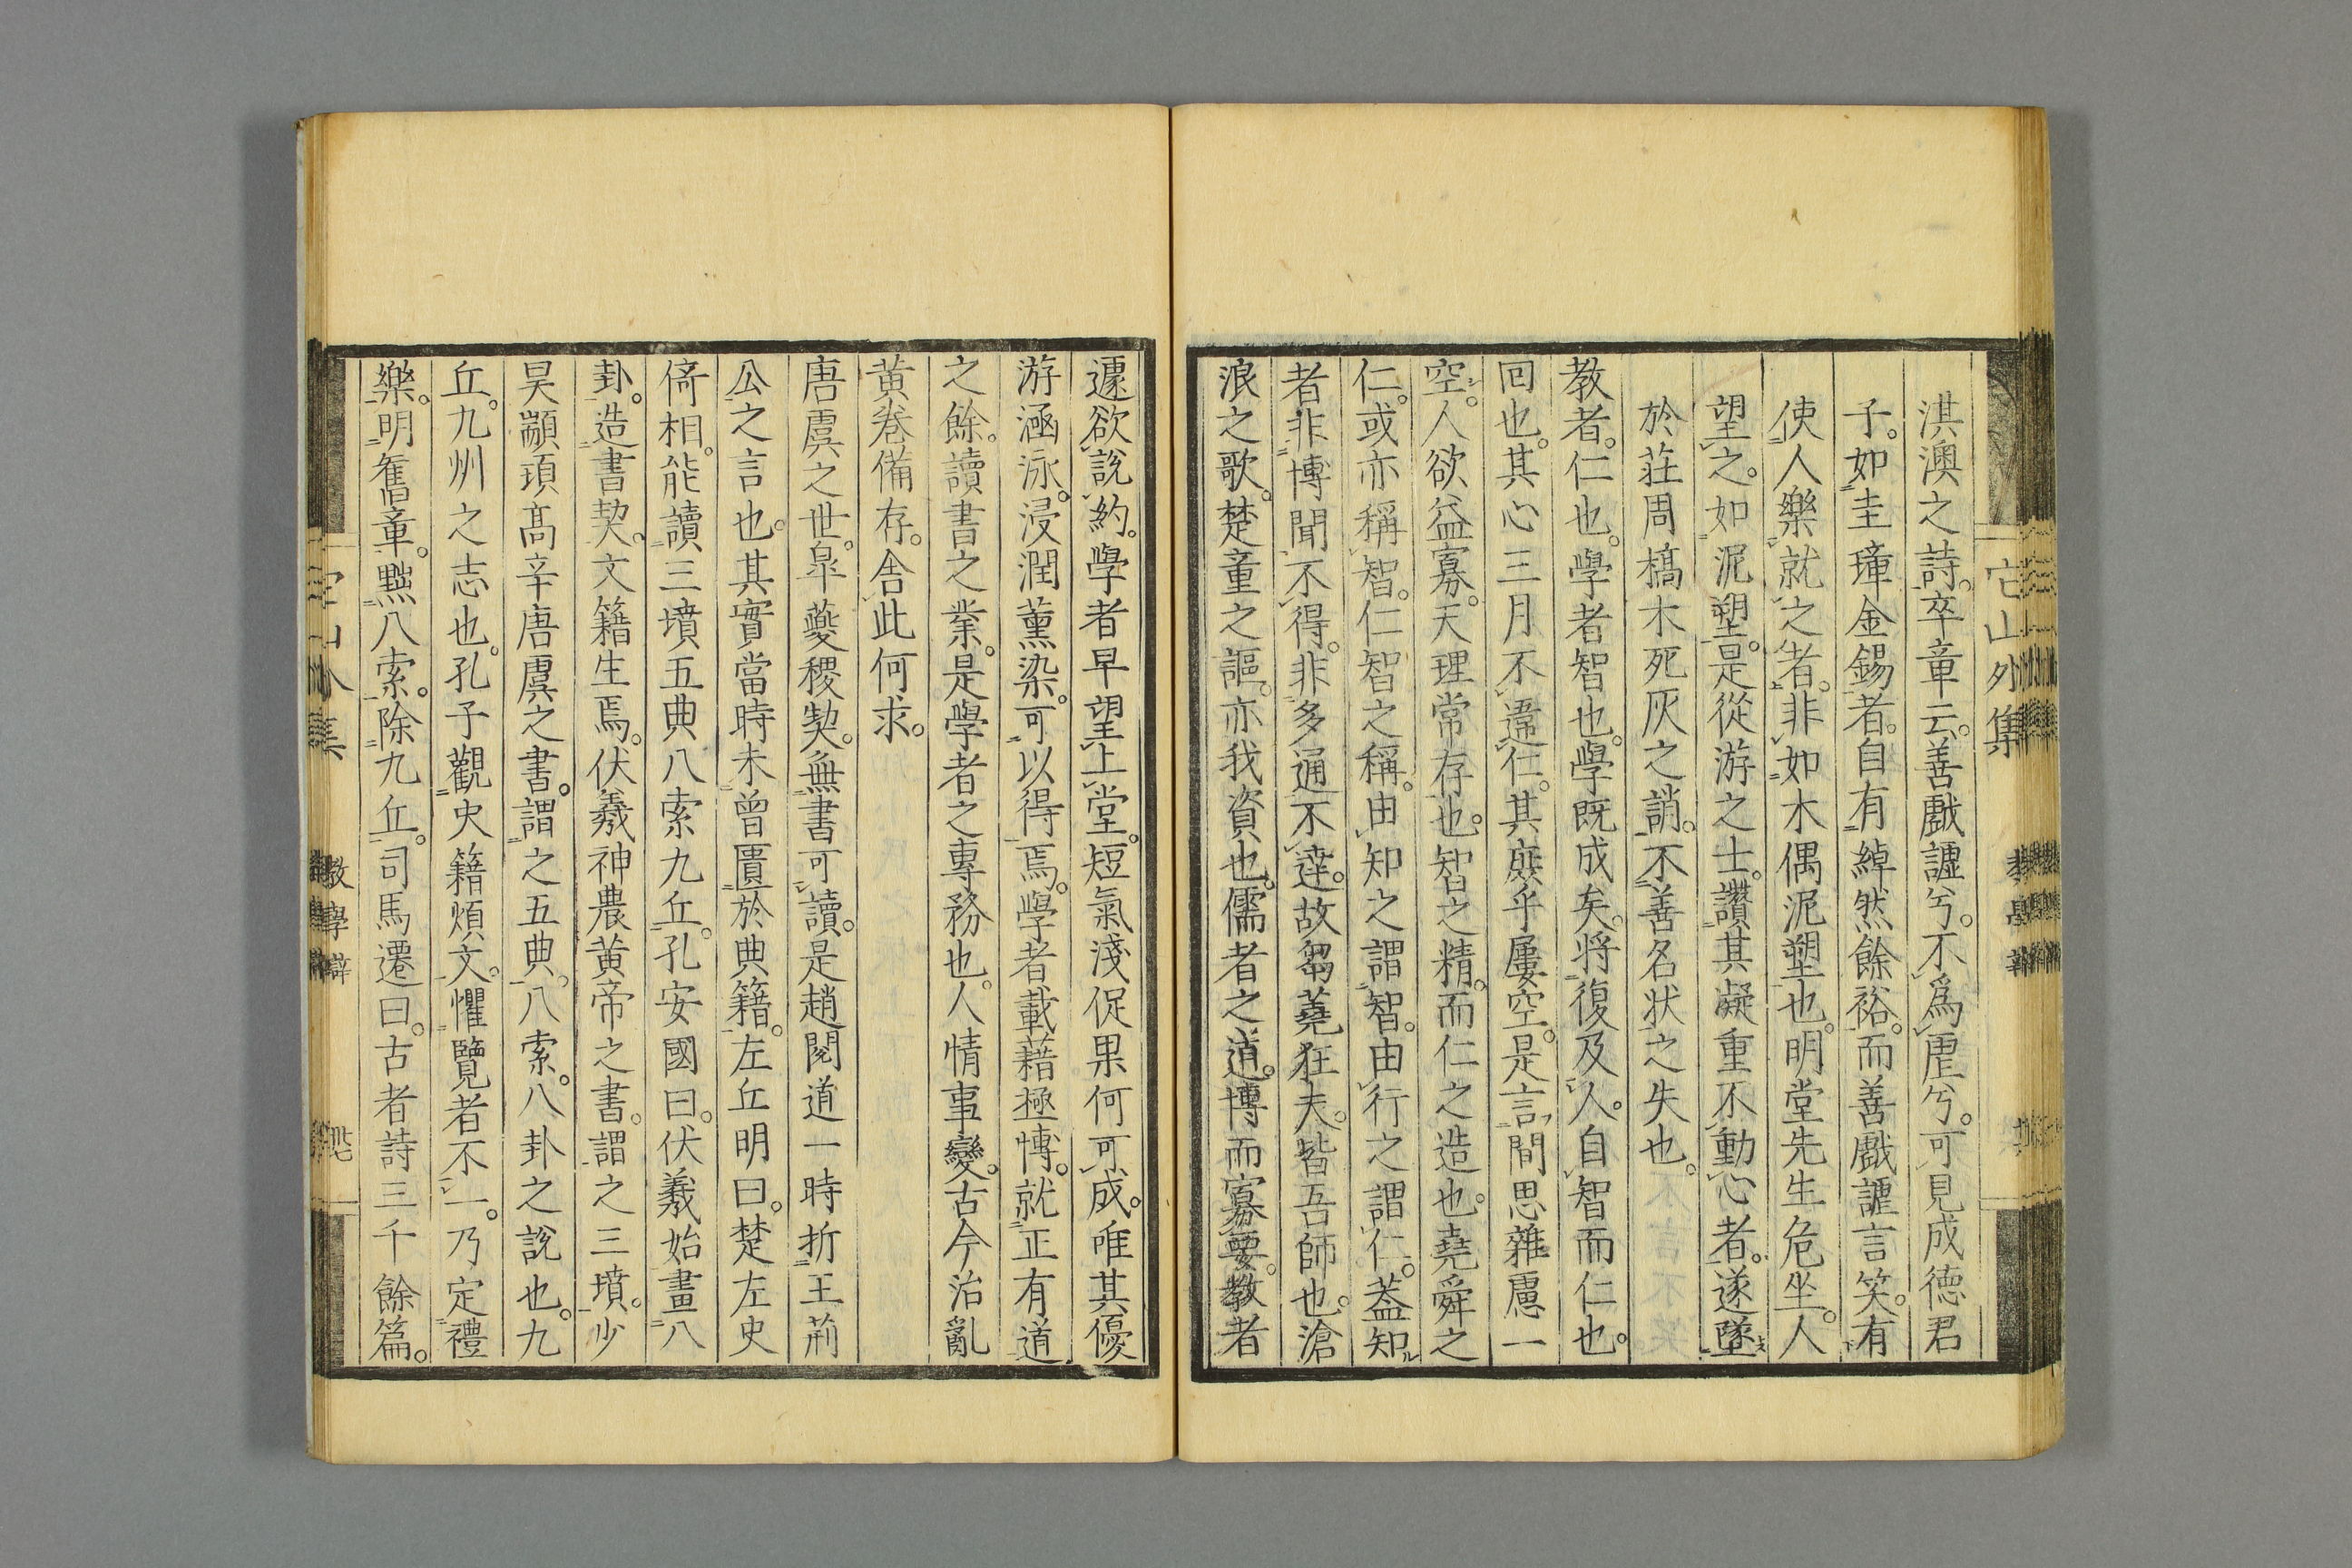 淇澳之詩。卒章云。善戲謔兮。不爲虐兮。可見成德君
子。如圭璋金錫者。自有綽然餘裕。而善戲謔言笑。有
使人樂就之者。非如木偶泥塑也。明堂先生危坐。人
望之。如泥塑。是從游之士。讚其凝重不動心者。遂墜
於莊周槁木死灰之誚。不善名状之失也。
教者。仁也。學者智也。學既成矣。将復及人。自智而仁也。
回也。其心三月不違仁。其庶乎屢空。是言間思雜慮一
空。人欲益寡。天理常存也。智之精。而仁之造也。堯舜之
仁。或亦稱智。仁智之稱。由知之謂智。由行之謂仁。蓋知
者非博聞不得。非多通不達。故芻蕘狂夫。皆吾師也。滄
浪之歌。楚童之謳。亦我資也。儒者之道。博而寡要。教者
遽欲説約。學者早望上堂。短氣淺促果何可成。唯其優
游涵泳。浸潤薫染。可以得焉。學者載藉極博。就正有道
之餘。讀書之業。是學者之專務也。人情事變。古今治亂
黄卷備存。舎此何求。
唐虞之世。皐夔稷契。無書可讀。是趙閱道一時折王荊
公之言也。其實當時未曾匱於典籍。左丘明曰。楚左史
倚相。能讀三墳五典八索九丘。孔安國曰。伏羲始畫八
卦。造書契。文籍生焉。伏羲神農黄帝之書。謂之三墳。少
昊顓頊髙辛唐虞之書。謂之五典。八索。八卦之説也。九
丘。九州之志也。孔子觀史籍煩文。懼覽者不一。乃定禮
樂。明舊章。黜八索。除九丘。司馬遷曰。古者詩三千餘篇。
它山外集